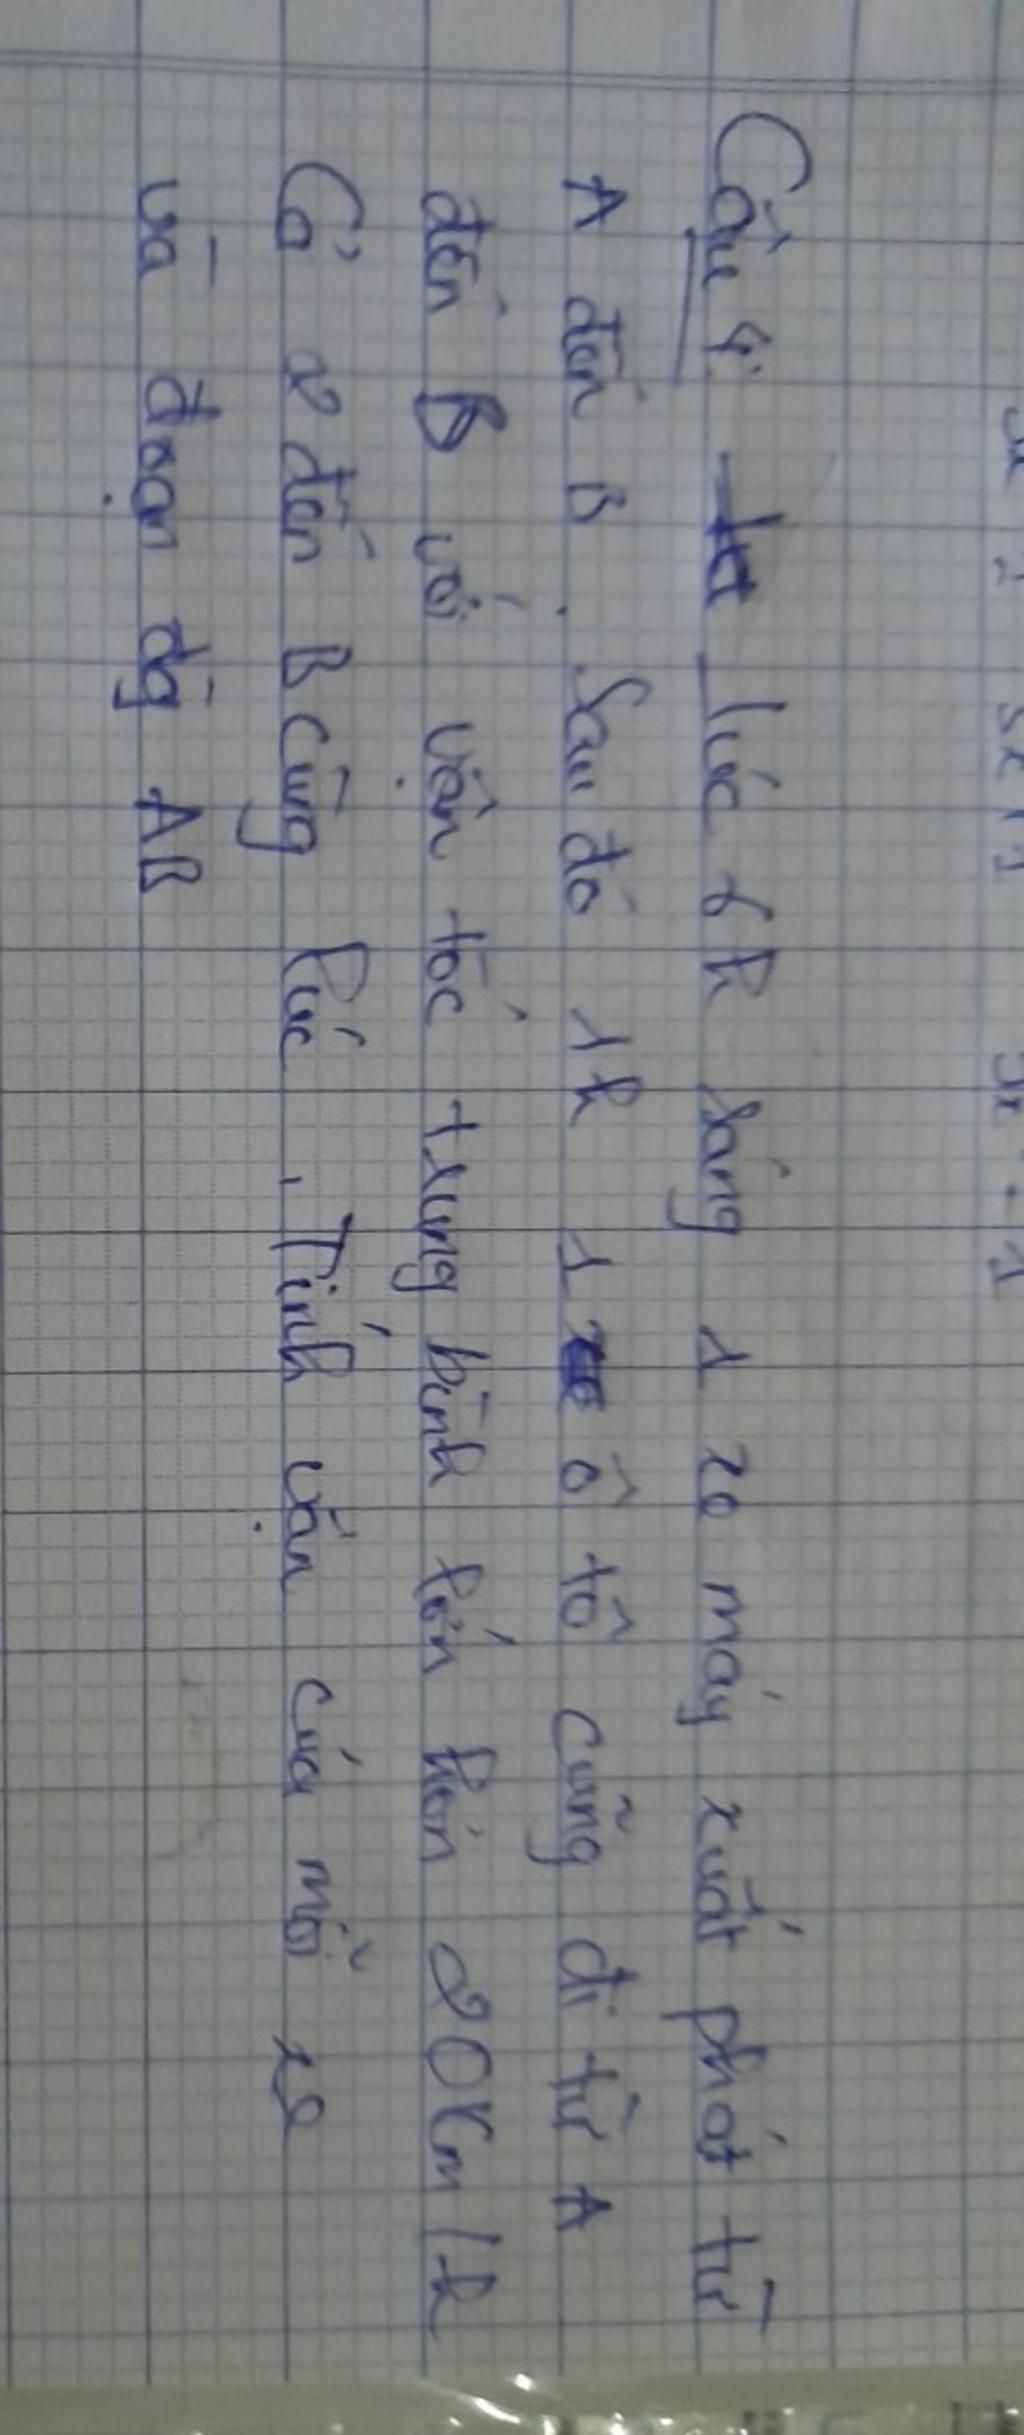 Câu 4: lúc 6h sáng 1 xe máy xuất phát từ
A đến B. Sau đó 1h 1 ô tô cũng đi từ A
đến B với vận tốc trung bình lớn hơn 20Km/h
Cả 2 đến B cùng lúc. Tính vận của mỗi xe
và đoạn đg AB